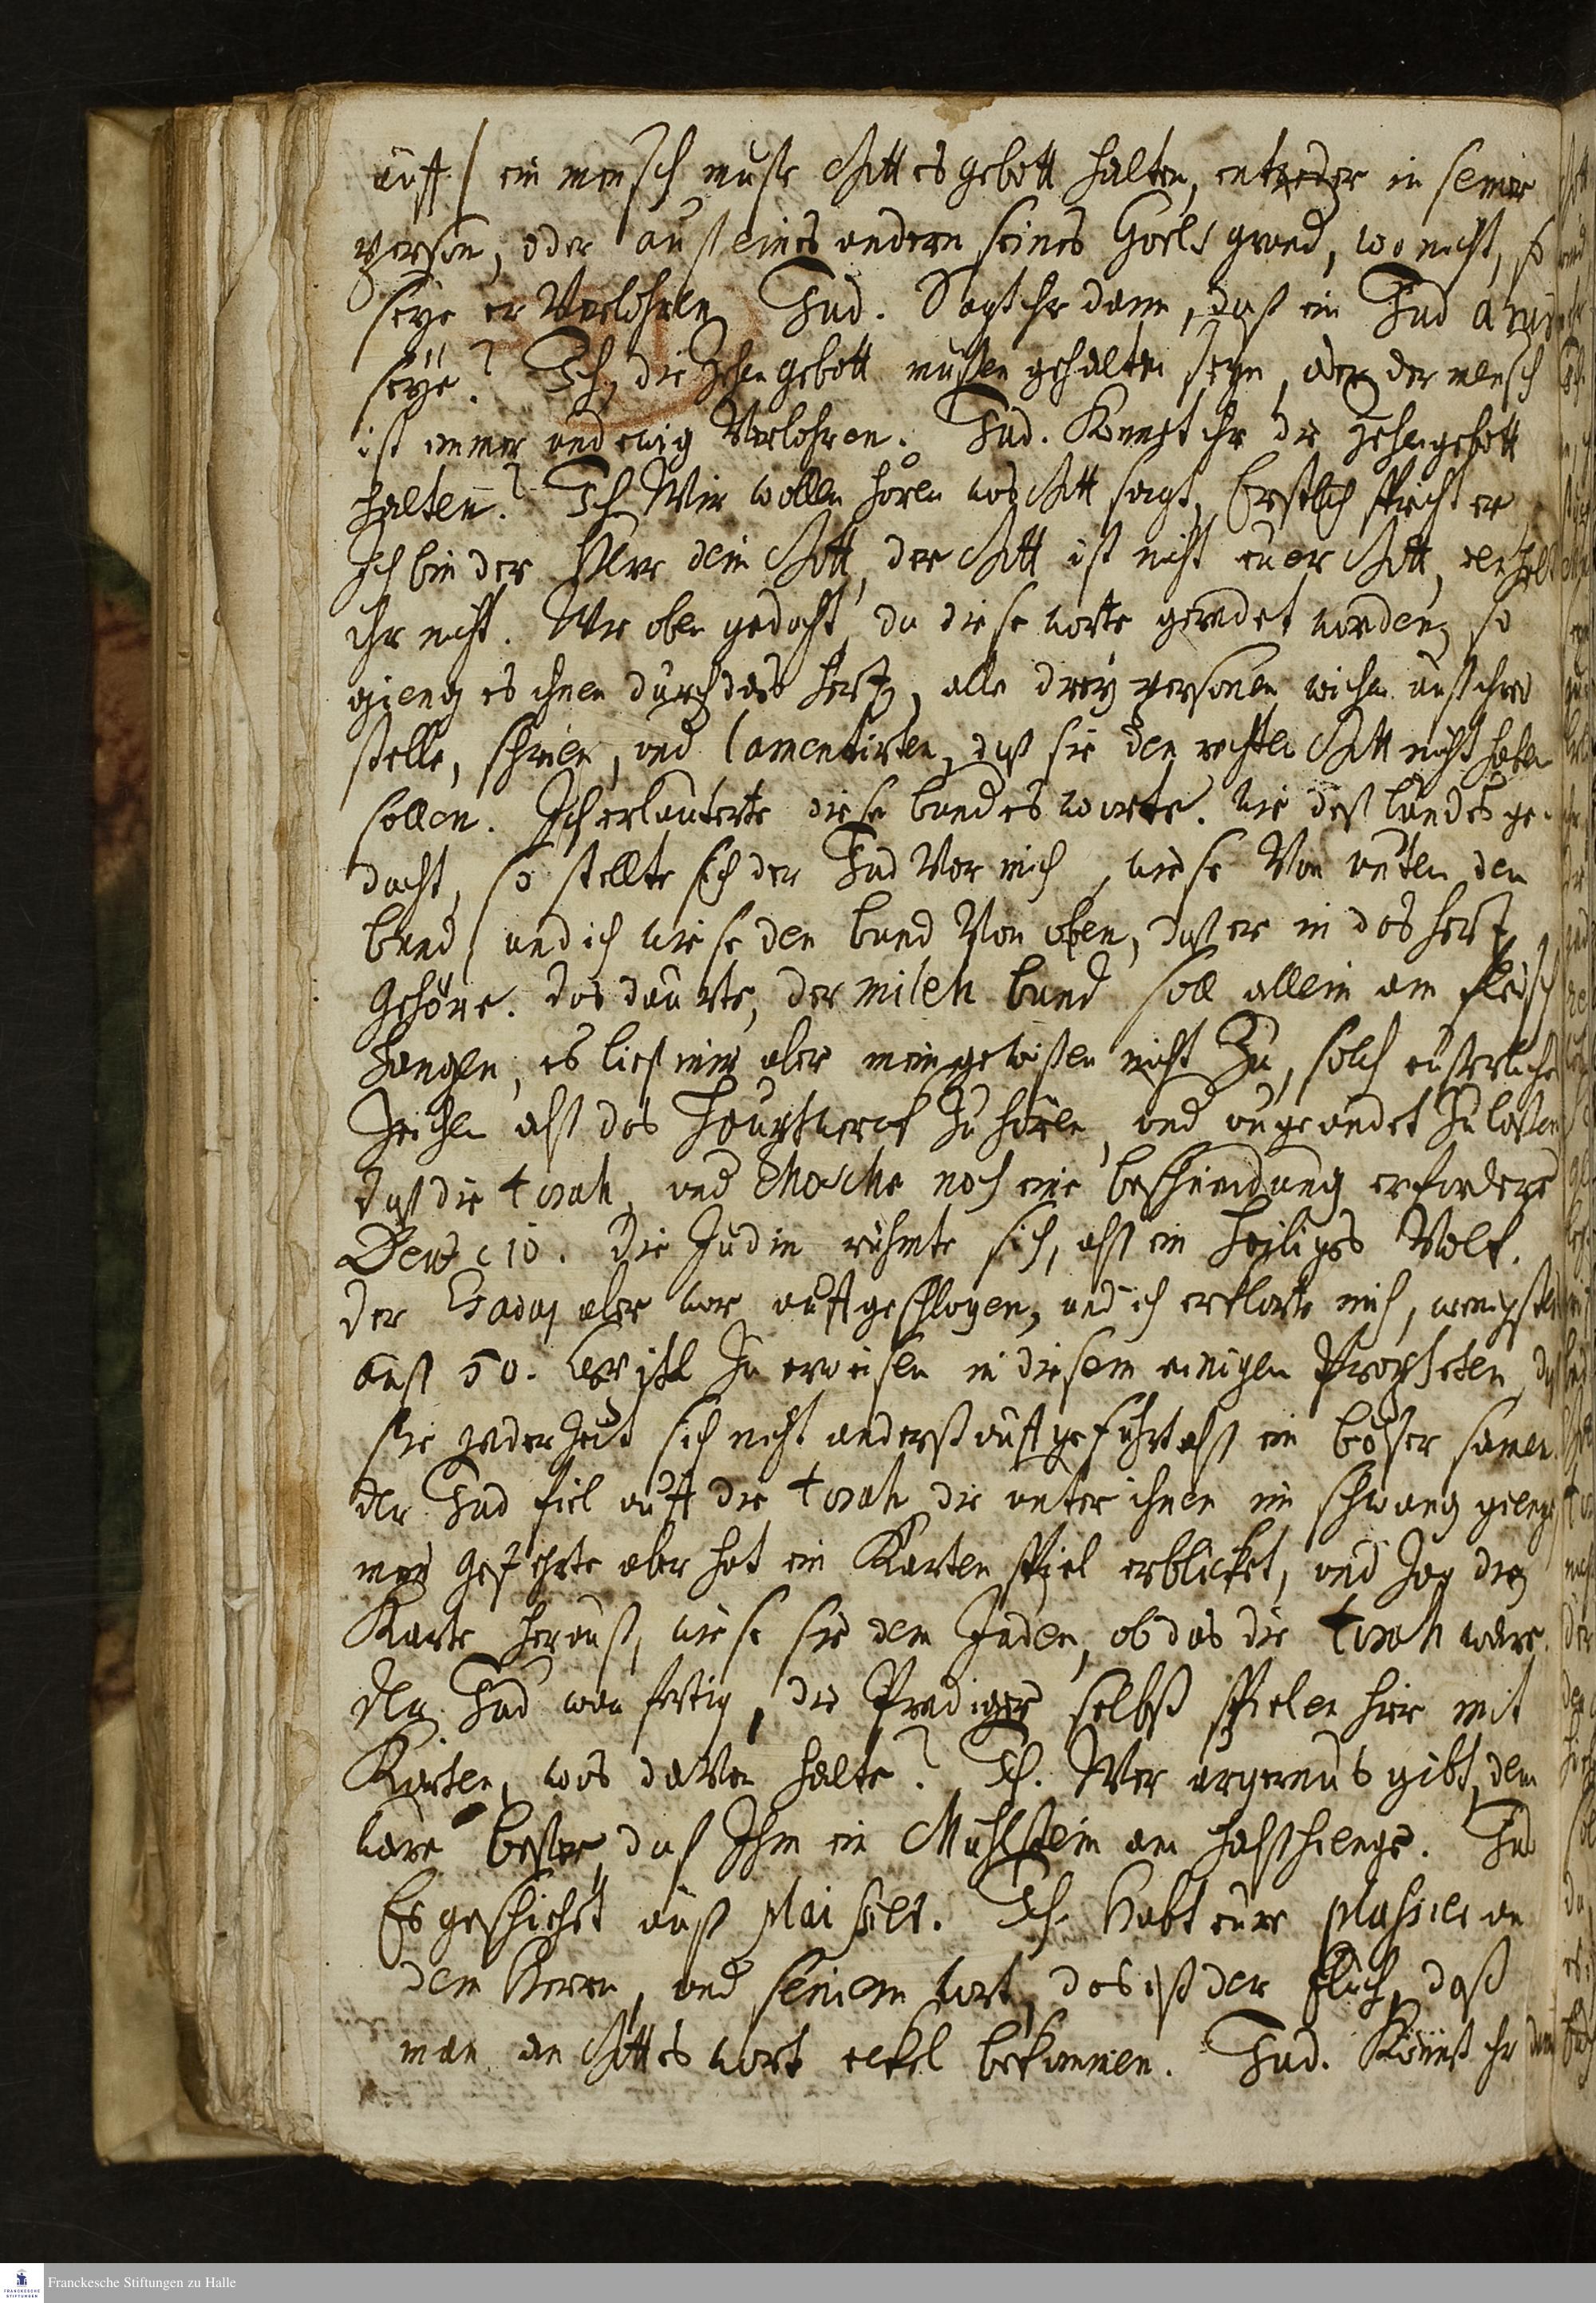 auff, ein mensch muste Gottes gebott halten, entweder in seiner
person, oder auß eines andern seines Goels grund, wo nicht, so
seye er Verlohren. Jud. Sagt ihr dann, daß ein Jud
seye? Ich, die Zehen gebott müßen gehalten seyn, oder der mensch
ist immer und ewig Verlohren. Jud. Konnet ihr die zehen gebott
halten? Ich Wir wollen hören was Gott sagt, Erstlich spricht er
Ich bin der Herr dein Gott, der Gott ist nicht euer Gott, den habt
ihr nicht. Wie oben gedacht, da diese worte geredet worden, so
gieng es ihnen durch das hertz, alle drey personen wichen auß ihrer
stelle, schrien, und lamentirten, daß sie den rechten Gott nicht haben
sollen. Ich erlauterte diese bundes worte. Wie deß bundes ge-
dacht, so stellte sich der Jud Vor mich, wiese Von unten den
bund, und ich wiese den bund Von oben, daß er in das hertz
Gehöre. das daurte, der milah bund soll allein am fleisch
hangen, es ließ mir aber mein gewißen nicht Zu, solch eusserliche
Zeichen alß das Hauptwerck Zu hören, und ungeandet Zu laßen
daß die torah, und Mosche noch eine beschneidung erfordere
Deut c 10. Die Judin rühmte sich, alß ein heiliges Volck.
der aber war auffgeschlagen, und ich erklarte mich, wenigstens
auß 50. Zu erweisen in diesem einigen Propheten, daß
sie jederzeit sich nicht anderß auffgeführt alß ein böser samen.
der Jud fiel auff die torah, die unter ihnen im schwang gienge
mein Gefehrte aber hat ein Karten spiel erblicket, und Zog drey
Karte herauß, wiese sie dem Juden, ob das die torah ware.
der Jud war fertig, die Prediger selbst spielen hier mit
Karten, was davon halte? Ich. Wer ärgernüs gibt, dem
ware beßer, daß Ihm ein Mühlstein am halß hienge. Jud
Es geschiehet auß plaisilt. Ich. Habt eure plasiele an
dem Herrn, und seinem wort, das ist der fluch, daß
man an Gottes wort eckel bekommen. Jud. Könnet ihr dann
Franckesche Stiftungen zu Halle